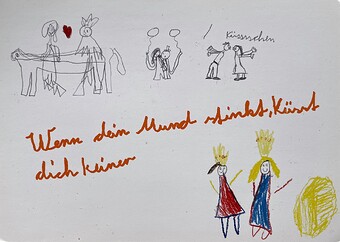 Küssschen
Wenn dein Mund stinkt, Küsst
dich keiner